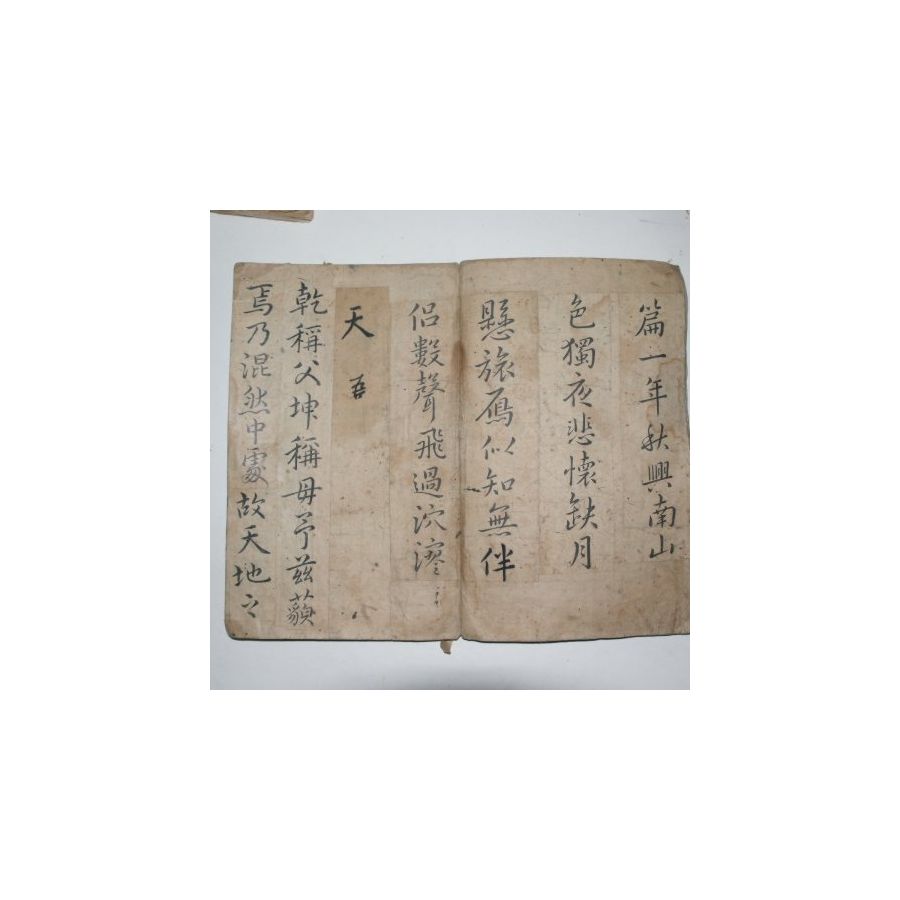 篇一年秋興南山
色獨夜悲懷缺月
懸旅鴈似知無伴
侣數聲飛過泬漻
天吾
乾稱父坤稱母予茲藐
焉乃混然中處故天地之